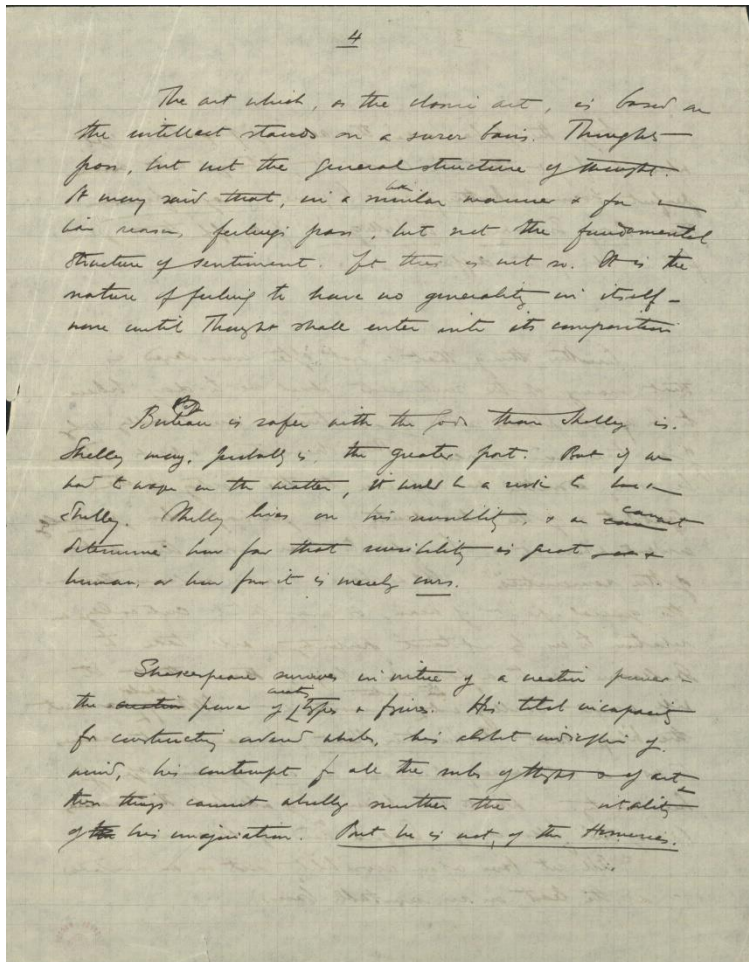 4
The art which, as the classic art, is based on
the intellect stands on a surer basis. Thoughts
pass, but not the general structure of thought.
It may said that, in a similar manner & for a
reason, feelings pass, but not the fundamental
structure of sentiment. Yet this is not so. It is the
nature of feeling to have no generality in itself –
none until Thought shall enter into its composition
Boileau is safer with the gods than Shelley is.
Shelley may, probably is, the greater poet. But if we
had to wager on the matter, it would be a risk to back
Shelley. Shelley lives on his sensibility, & we cannot
determine how far that sensibility is great
human, or how far it is merely ours.
Shakespeare survives in virtue of a creative power –
the creative power of creating types & figures. His total incapacity
for constructing ordered wholes, his absolute indiscipline of
mind, his contempt for all the rules of thought & of art –
these things cannot wholly smother the vitality
of his imagination. But he is not of the Homeric.